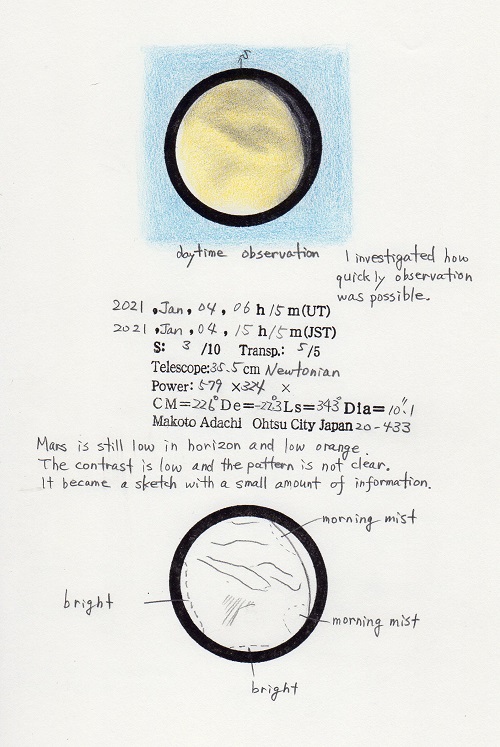 S
daytime observation
I investigated how
quickly observation
was possible.
2021, Jan, 04, 06 h 15 m (UT)
2021, Jan, 04, 15 h 15 m (JST)
S: 3 /10 Transp.: 5/5
Telescope: 35.5 cm Newtonian
Power: 579 × 324 ×
CM=226° De=-22.3 Ls=343° Dia=10".1
Makoto Adachi Ohtsu City Japan 20-433
Mars is still low in horizon and low orange.
The contrast is low and the pattern is not clear.
It became a sketch with a small amount of information.
morning mist
bright
morning mist
bright